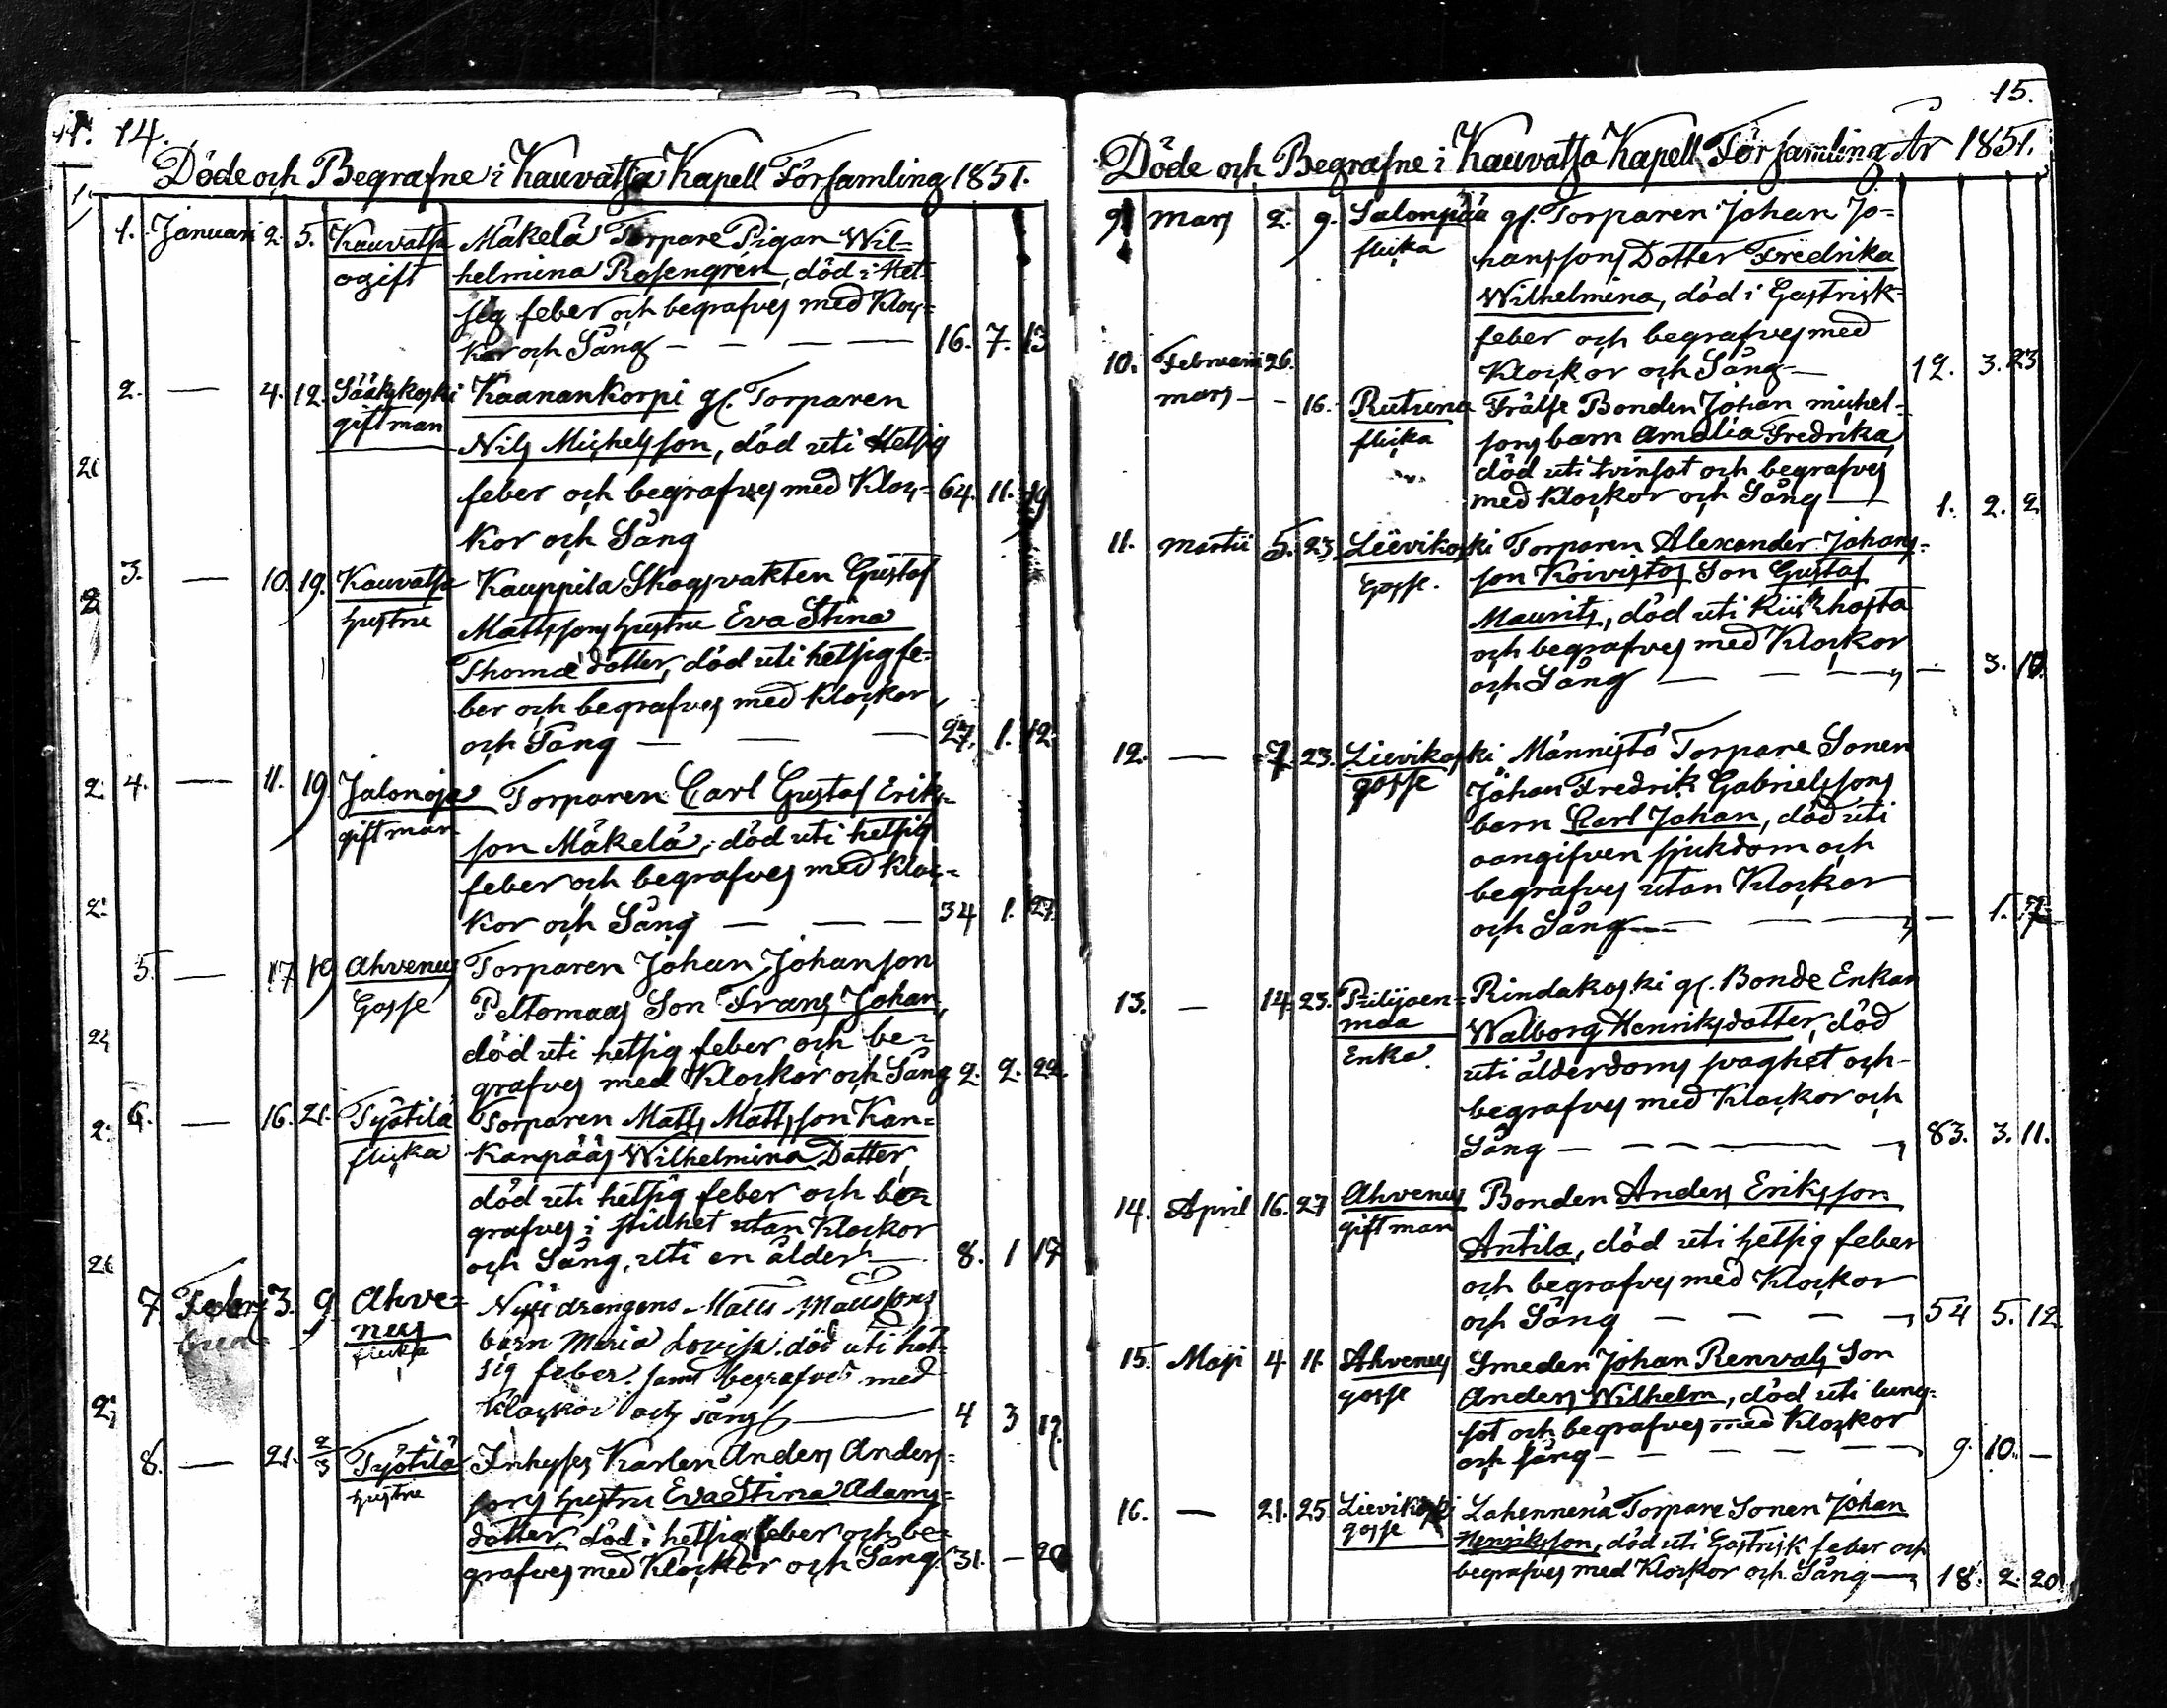 14.
Döde och Begrafne i Kauvatsa Kapell Församling 1851.
1. Januari 2. 5. Kauvatsa Mäkelä Torpare Pigan Wil=
ogift helmina Rosengrén, död i Het=
sig feber och begrafves med Kloc=
kor och Sång — — — — 16. 7. 13
2. — 4. 12. Sääkskoski Kaanankorpi gl. Torparen
gift man Nils Michelsson, död uti Hetsig
feber och begrafves med Kloc= 64. 11. 19
kor och Sång
3. — 10. 19. Kauvatsa Kauppila Skogsvakten Gustaf
hustru Mattssons hustru Eva Stina
Thomædotter, död uti hetsig fe=
ber och begrafves med klockor
och Sång — — — 27. 1. 12.
4. — 11. 19. Jalonoja Torparen Carl Gustaf Eriks=
gift man son Mäkelä, död uti hetsig
feber och begrafves med kloc=
kor och Sång — — — 34 1. 27.
5. — 17 19 Ahvenus Torparen Johan Johansson
Gosse Peltomaas Son Frans Johan,
död uti hetsig feber och be=
grafves med Klockor och Sång 2. 2. 22.
6. — 16. 21. Työtilä Torparen Matts Mattsson Kan=
flicka Kanpääs Wilhelmina Dotter,
död uti hetsig feber och be=
grafves i stillhet utan Klockor
och Sång, uti en ålder — 8. 1 17
7. 3. 9. Ahve=
nus Matts Mattssons
flicka barn Maria Lovisa, död uti het=
sig feber, samt begrafves med
Klockor och sång — 4 3 17.
8. — 21. 2/3 Työtilä Inhyses Karlen Anders Anders=
hustru sons hustru Eva Stina Adams=
dotter, död i hetsig feber och be=
grafves med Klockor och Sång. 31. — 20
15.
Döde och Begrafne i Kauvatsa Kapell Församling År 1851.
9. Mars 2. 9. Salonpää gl. Torparen Johan Jo=
flicka hanssons Dotter Fredrika
Wilhelmina, död i Gastrisk=
feber och begrafves med
Klockor och Sång — 12. 3. 23
10. Februarii 26.
mars — - 16. Rutuna Frälse Bonden Johan michel=
flicka sons barn Amalia Fredrika,
död uti tvinsot och begrafves
med klockor och Sång — 1. 2. 2.
11. Martii 5. 23 Lievikoski Torparen Alexander Johans=
Gosse. son Koivistos Son Gustaf
Maurits, död uti Kiikhosta
och begrafves med Klockor
och Sång — — — — 3. 10.
12. — 7. 23. Lievikoski Männistö Torpare Sonen
gosse Johan Fredrik Gabrielssons
barn Carl Johan, död uti
oangifven sjukdom och
begrafves utan Klockor
och Sång — — — — 1. 7.
13. — 14. 23. Piilijoen= Rindakoski gl. Bonde Enkan
maa Walborg Henriksdotter, död
Enka. uti ålderdoms svaghet och
begrafves med Klockor och
Sång — — — — 83. 3. 11.
14. April 16. 27 Ahvenus Bonden Anders Eriksson
gift man Antila, död uti hetsig feber
och begrafves med Klockor
och Sång — — — — 54 5. 12.
15. Maji 4 11. Ahvenus Smeden Johan Renvals Son
gosse Anders Wilhelm, död uti lung=
sot och begrafves med Klockor
och sång — — — — 9. 10. —
16. — 21. 25. Lievikoski Lahennenä Torpare Sonen Johan
gosse Henriksson, död uti Gastrisk feber och
begrafves med Klockor och Sång — 18. 2. 20